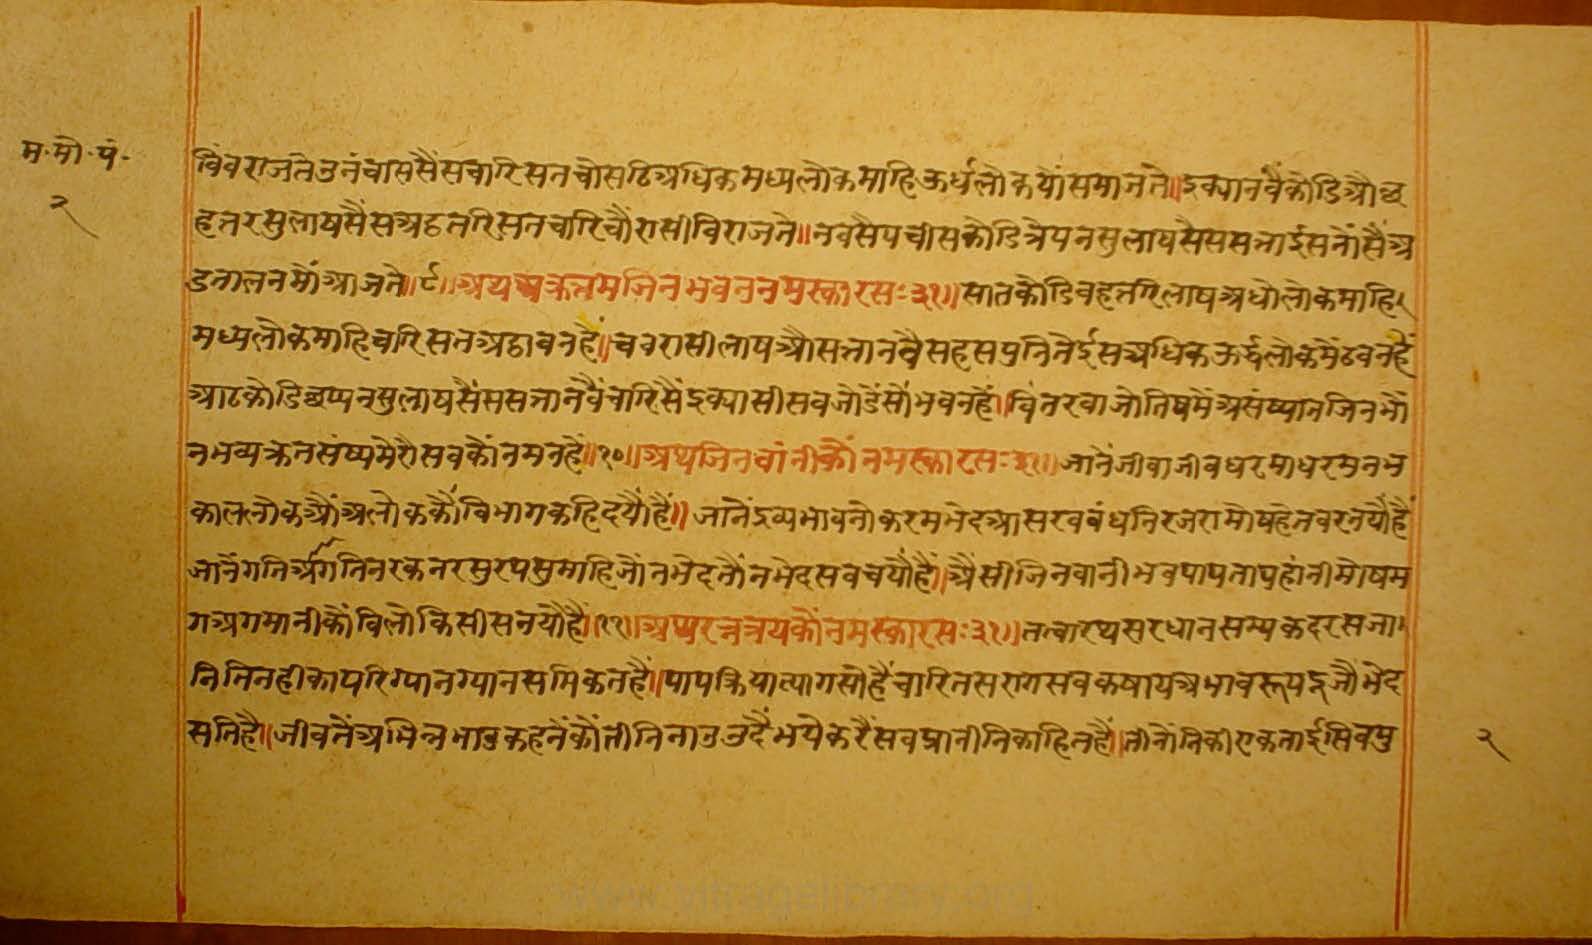 म·मो·पं·
२
विंवराजतेउनंचाससैंसचारिसतचोसठिअधिकमध्यलोकमाहिऊर्धलोकयोंसमाजते॥इक्यानवैकोडिऔछ
हतरसुलाषसैंसअठतरिसतचारिचौंरासीविराजते॥नवसैपचीसकोडित्रेपनसुलाषसैससत्ताईसनौंसैंअ
डतालनमौंआजते॥९॥अथअकृत्तमजिनभवननमस्कारसः३१॥सातकोडिवहतरिलाषअधोलोकमाहि
मध्यलोकमाहिचारिसतअठावनहैं॥चवरासीलाषऔसत्तानवैसहसपुनितेईसअधिकऊर्द्धलोकमैंठवनहैं
आठकोडिछप्पनसुलाषसैंससत्तानवैंचारिसैंइक्यासीसवजोडैंसौंभवनहैं॥विंतरवाजोतिषमेंअसंष्यातजिनभौं
नभव्यकृतसंष्यमेरौसवकौंनमनहैं॥१०॥अथजिनवांनीकौंनमस्कारसः३१॥जानेंजीवाजीवधरमाधरमनभ
काललोकऔंअलोककौंविभागकहिदयौंहैं॥जानेंद्रव्यभावनोकरमभेदआसरवबंधनिरजरामोषहेतवरनयौंहैं
जानेंगतिआगतिनरकनरसुरपसुमाहिजौंनभेदतौंनभेदसवचयौंहैं॥अैंसीजिनवानीभवपापतापहांनीमोषम
गअगमानीकौंविलोकिसीसनयौहैं॥११॥अथरत्नत्रयकौंनमस्कारसः३१॥तत्वारथसरधानसम्यकदरसजा
नितिनहीकोपरिग्यानग्यानसमिकतहैं॥पापक्रियात्यागसोहैंचारितसरागसवकषायअभावरूपदूजौंभेद
सतिहै॥जीवतेंअभिन्नभाउकहनेंकौंतीनिनाउउदैंभयेकरैंसवप्रानीनिकाहितहैं॥तीनोंनिकीएकताईसिवपु
२
www.vitragelibrary.org